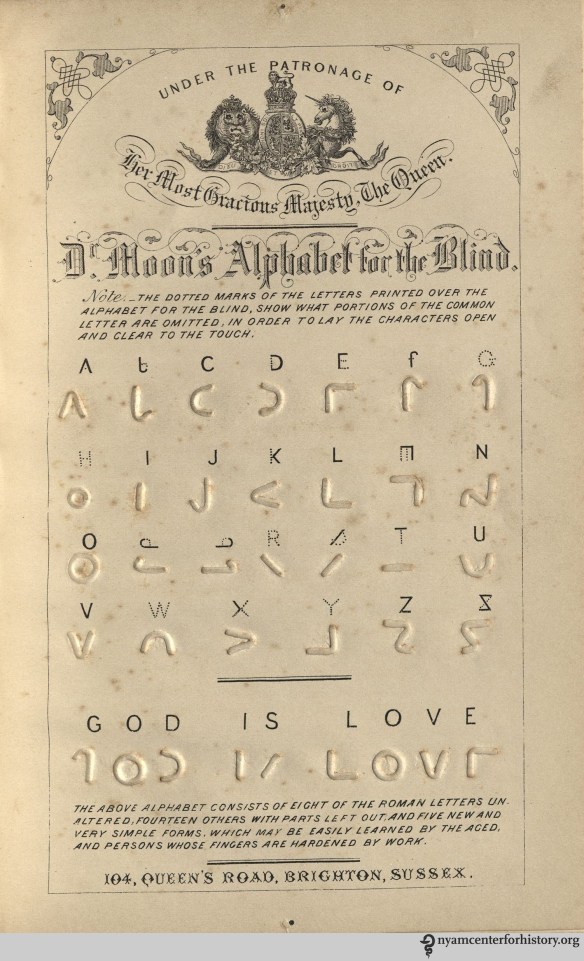 UNDER THE PATRONAGE OF
Her Most Gracious Majesty, The Queen.
Dr. Moon's Alphabet for the Blind.
Note._THE DOTTED MARKS OF THE LETTERS PRINTED OVER THE
ALPHABET FOR THE BLIND, SHOW WHAT PORTIONS OF THE COMMON
LETTER ARE OMITTED, IN ORDER TO LAY THE CHARACTERS OPEN
AND CLEAR TO THE TOUCH.
A b C D E f G
H I J K L M N
O P Q R S T U
V W X Y Z &
GOD IS LOVE
THE ABOVE ALPHABET CONSISTS OF EIGHT OF THE ROMAN LETTERS UN-
ALTERED, FOURTEEN OTHERS WITH PARTS LEFT OUT, AND FIVE NEW AND
VERY SIMPLE FORMS, WHICH MAY BE EASILY LEARNED BY THE AGED,
AND PERSONS WHOSE FINGERS ARE HARDENED BY WORK.
104, QUEEN'S ROAD, BRIGHTON, SUSSEX.
nyamcenterforhistory.org